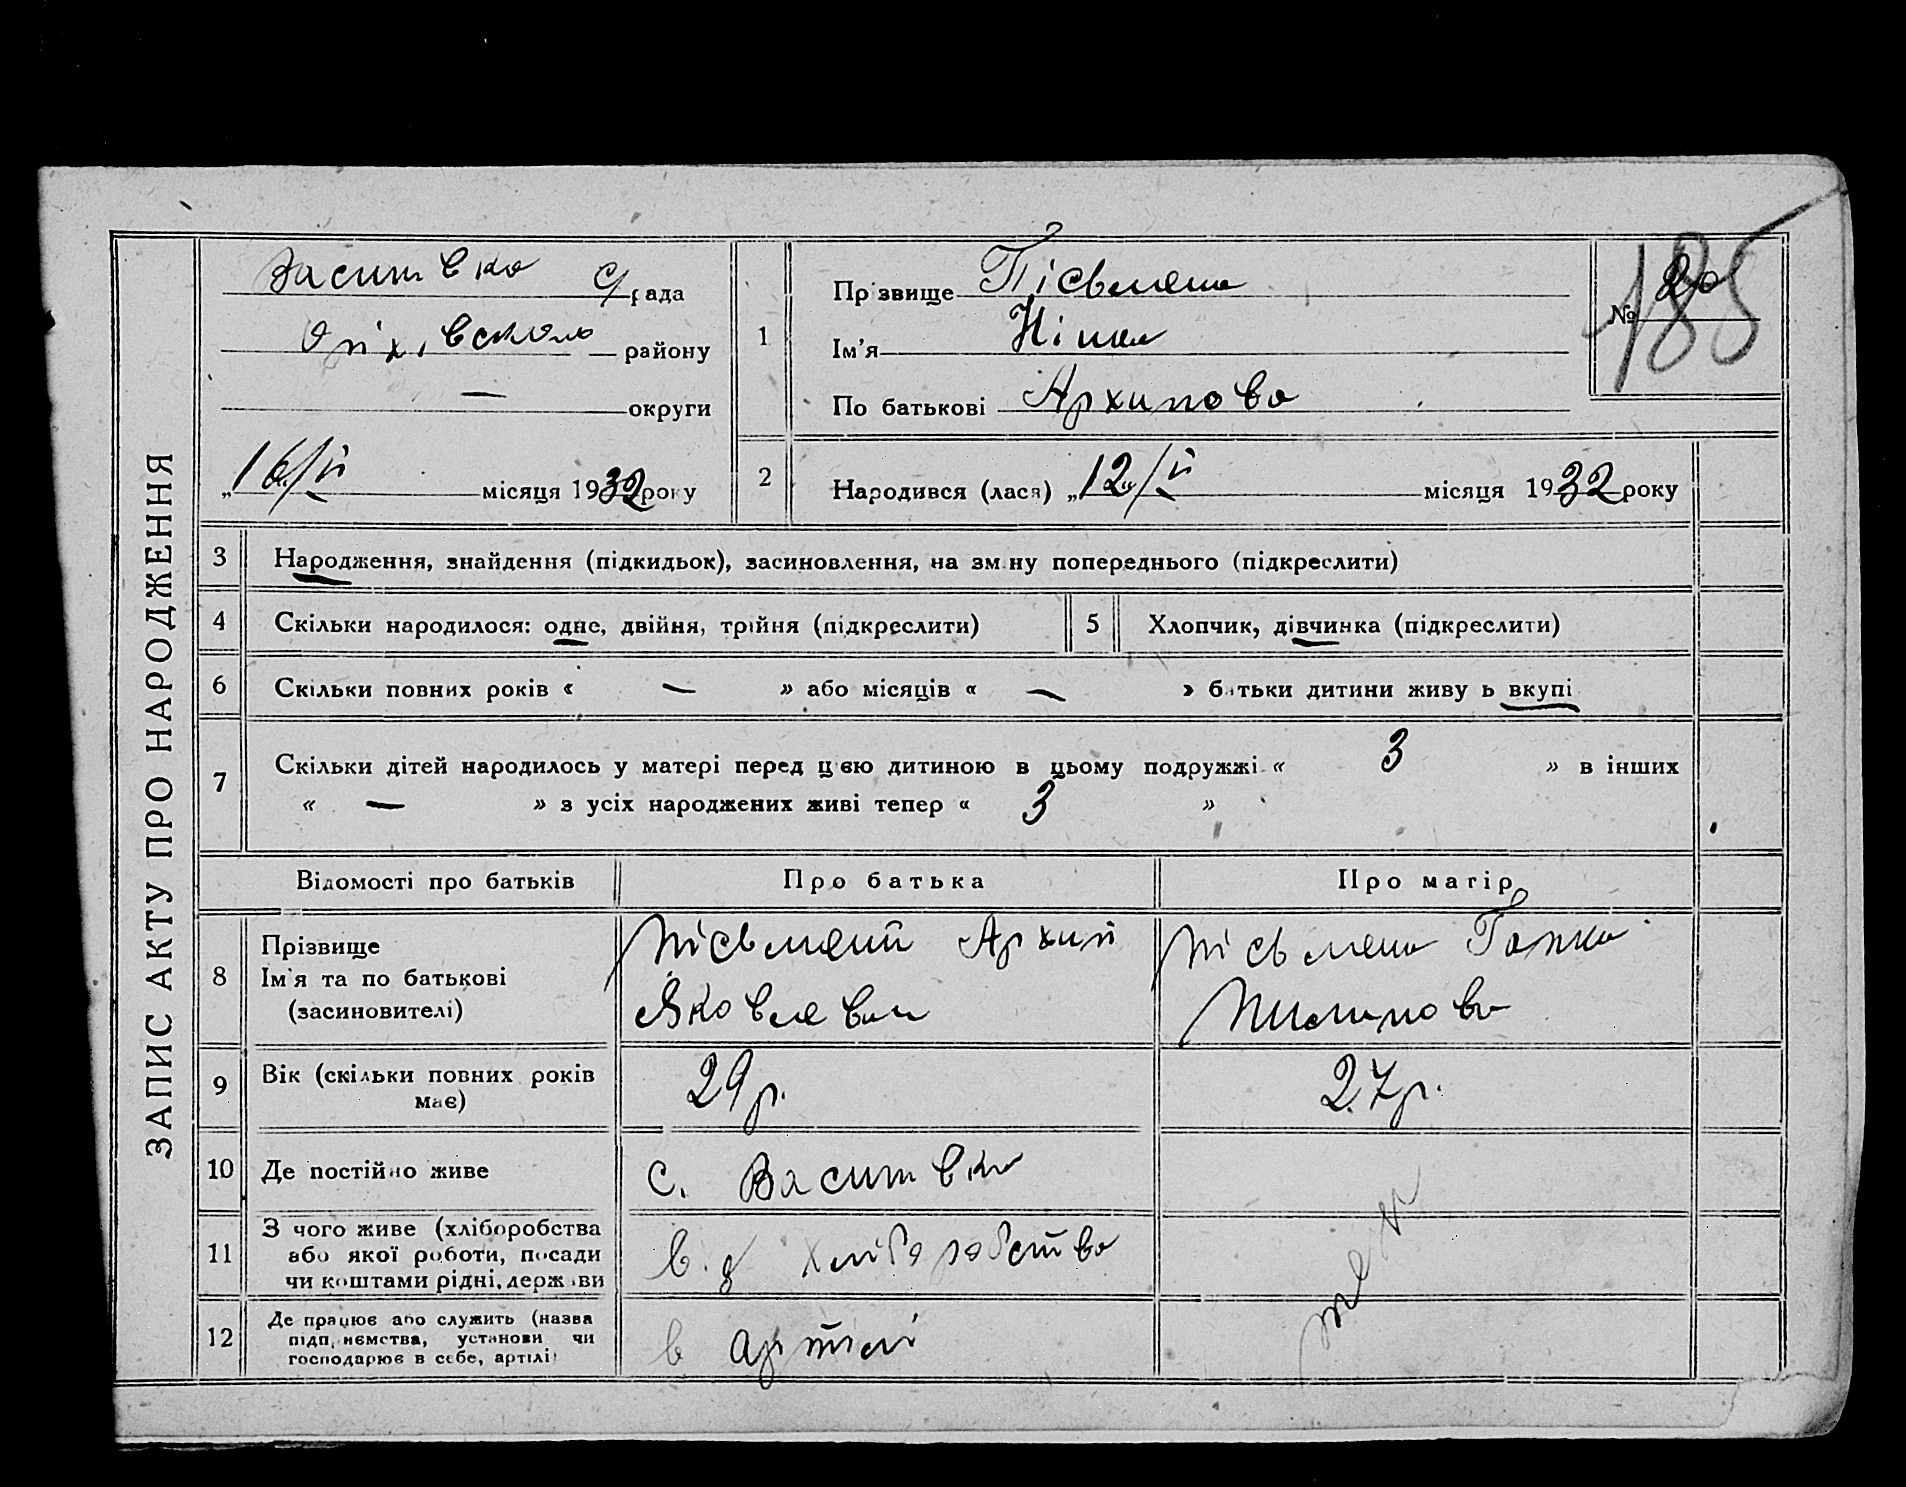 ЗАПИС АКТУ ПРО НАРОДЖЕННЯ
Васинівка с/рада
Оріхівського району
— округи
„16/II місяця 1932 року
1
Прізвище Пісьмена
Ім'я Ніна
По батькові Архипова
№ 20
185
2
Народився (лася) „12/II місяця 1932 року
3 Народження, знайдення (підкидьок), засиновлення, на зміну попереднього (підкреслити)
4 Скільки народилося: одне, двійня, трійня (підкреслити)
5 Хлопчик, дівчинка (підкреслити)
6 Скільки повних років « — » або місяців « — » батьки дитини живуть вкупі
7 Скільки дітей народилось у матері перед цією дитиною в цьому подружжі « 3 » в інших
« — » з усіх народжених живі тепер « 3 »
Відомості про батьків Про батька Про матір
8 Прізвище
Ім'я та по батькові
(засиновителі)
Пісьмений Архип
Яковлевич
Пісьмена Гапка
Пилипова
9 Вік (скільки повних років
має)
29 р. 27 р.
10 Де постійно живе с. Васинівка
11 З чого живе (хліборобства
або якої роботи, посади
чи коштами рідні, держави
хліборобства
12 Де працює або служить (назва
підприємства, установи чи
господарює в себе, артілі)
в артілі